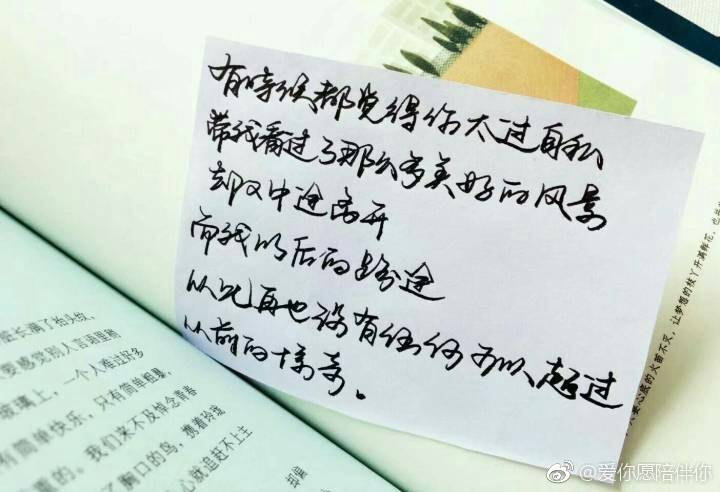 有时候都觉得你太过自私
带我看过了那么多美好的风景
却又中途离开
而我以后的路途
从此再也没有任何可以超过
从前的惊奇。
脏长满了抬头纹,
要感觉别人言语里稍
玻璃上,一个人难过好多
有简单快乐,只有简单粗暴,
重的。我们来不及悼念青春
了胸口的鸟,携着玲珑
心就追赶不上主
却偏
要心底的火苗不灭,让梦想的枝丫开满鲜花,也
@爱你愿陪伴你